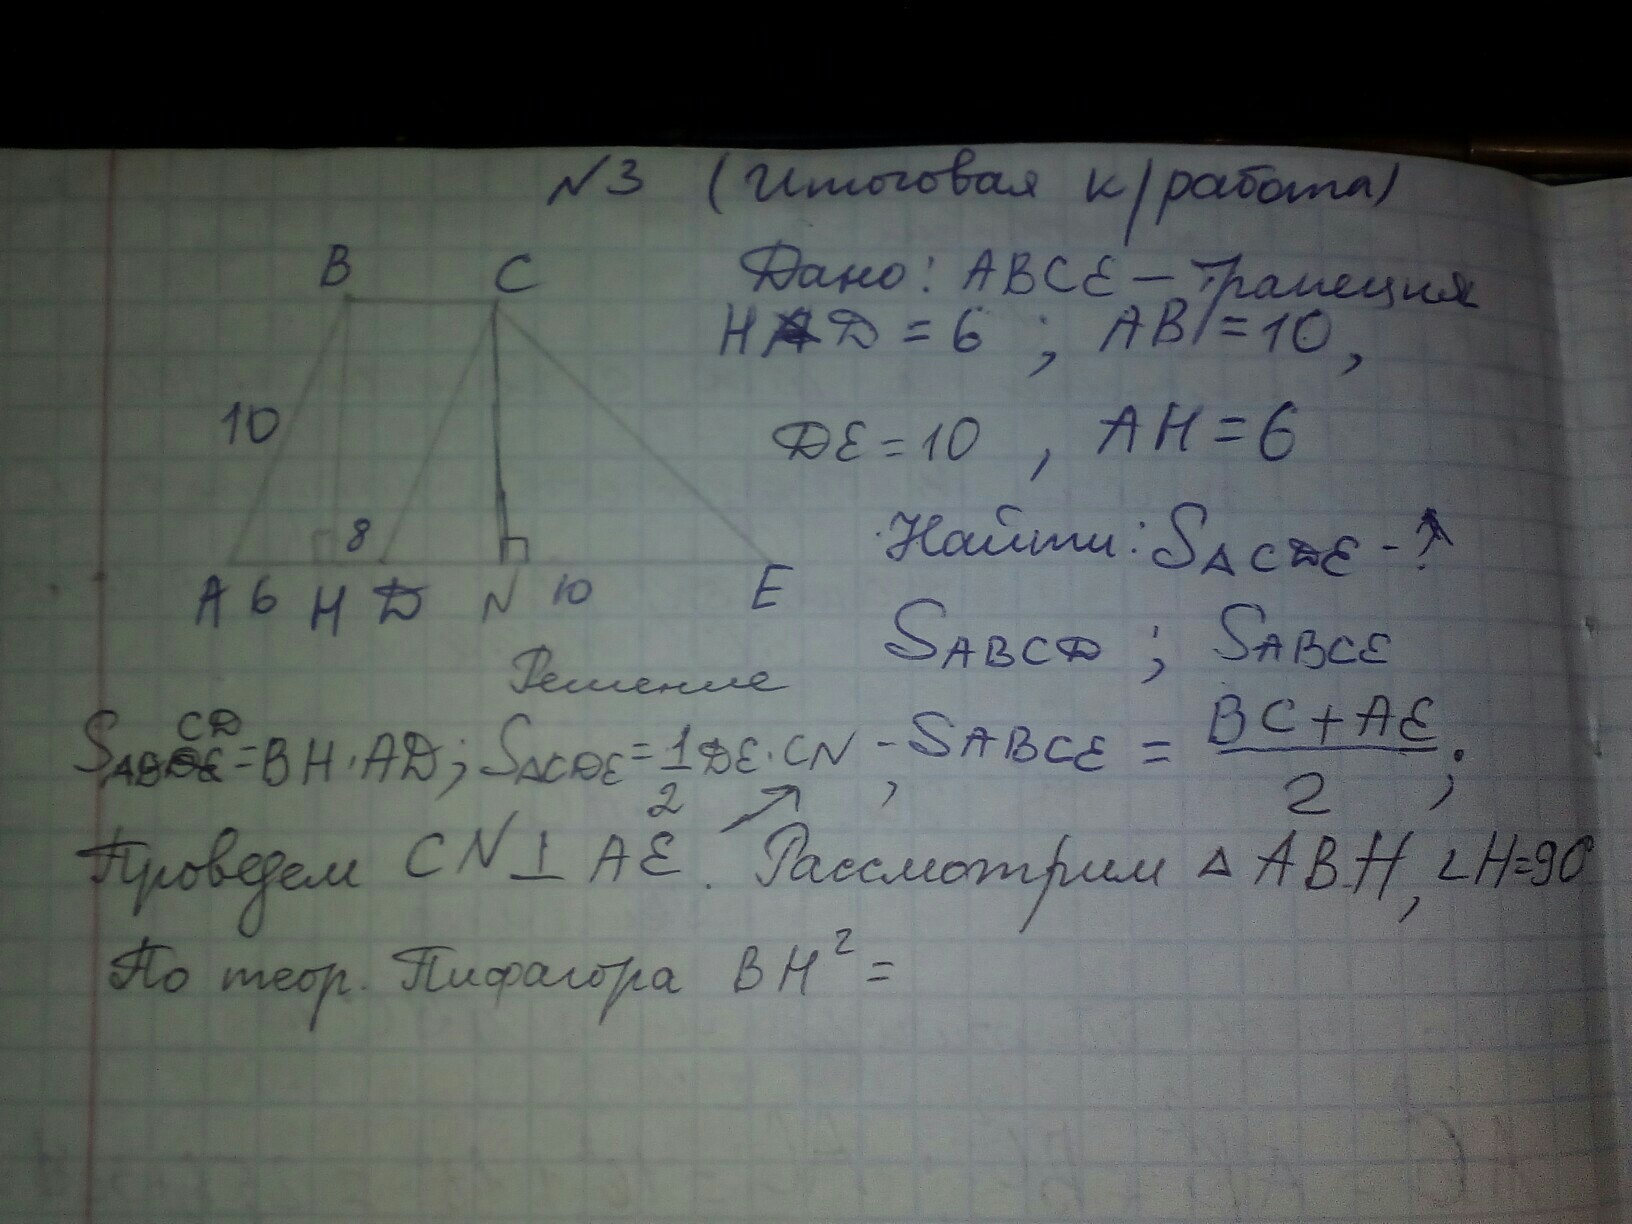 N3 (Итоговая к/работа)
B C
10
8
A 6 H D N 10 E
Дано: ABCE – трапеция
HD = 6 ; AB = 10,
DE = 10 , AH = 6
Найти: S△CDE - ?
SABCD ; SABCE
Решение
SABCD = BH · AD; S△CDE = 1/2 DE · CN ; SABCE = BC + AE / 2 ;
Проведем CN ⊥ AE. Рассмотрим △ ABH, ∠H=90°
По теор. Пифагора BH² =